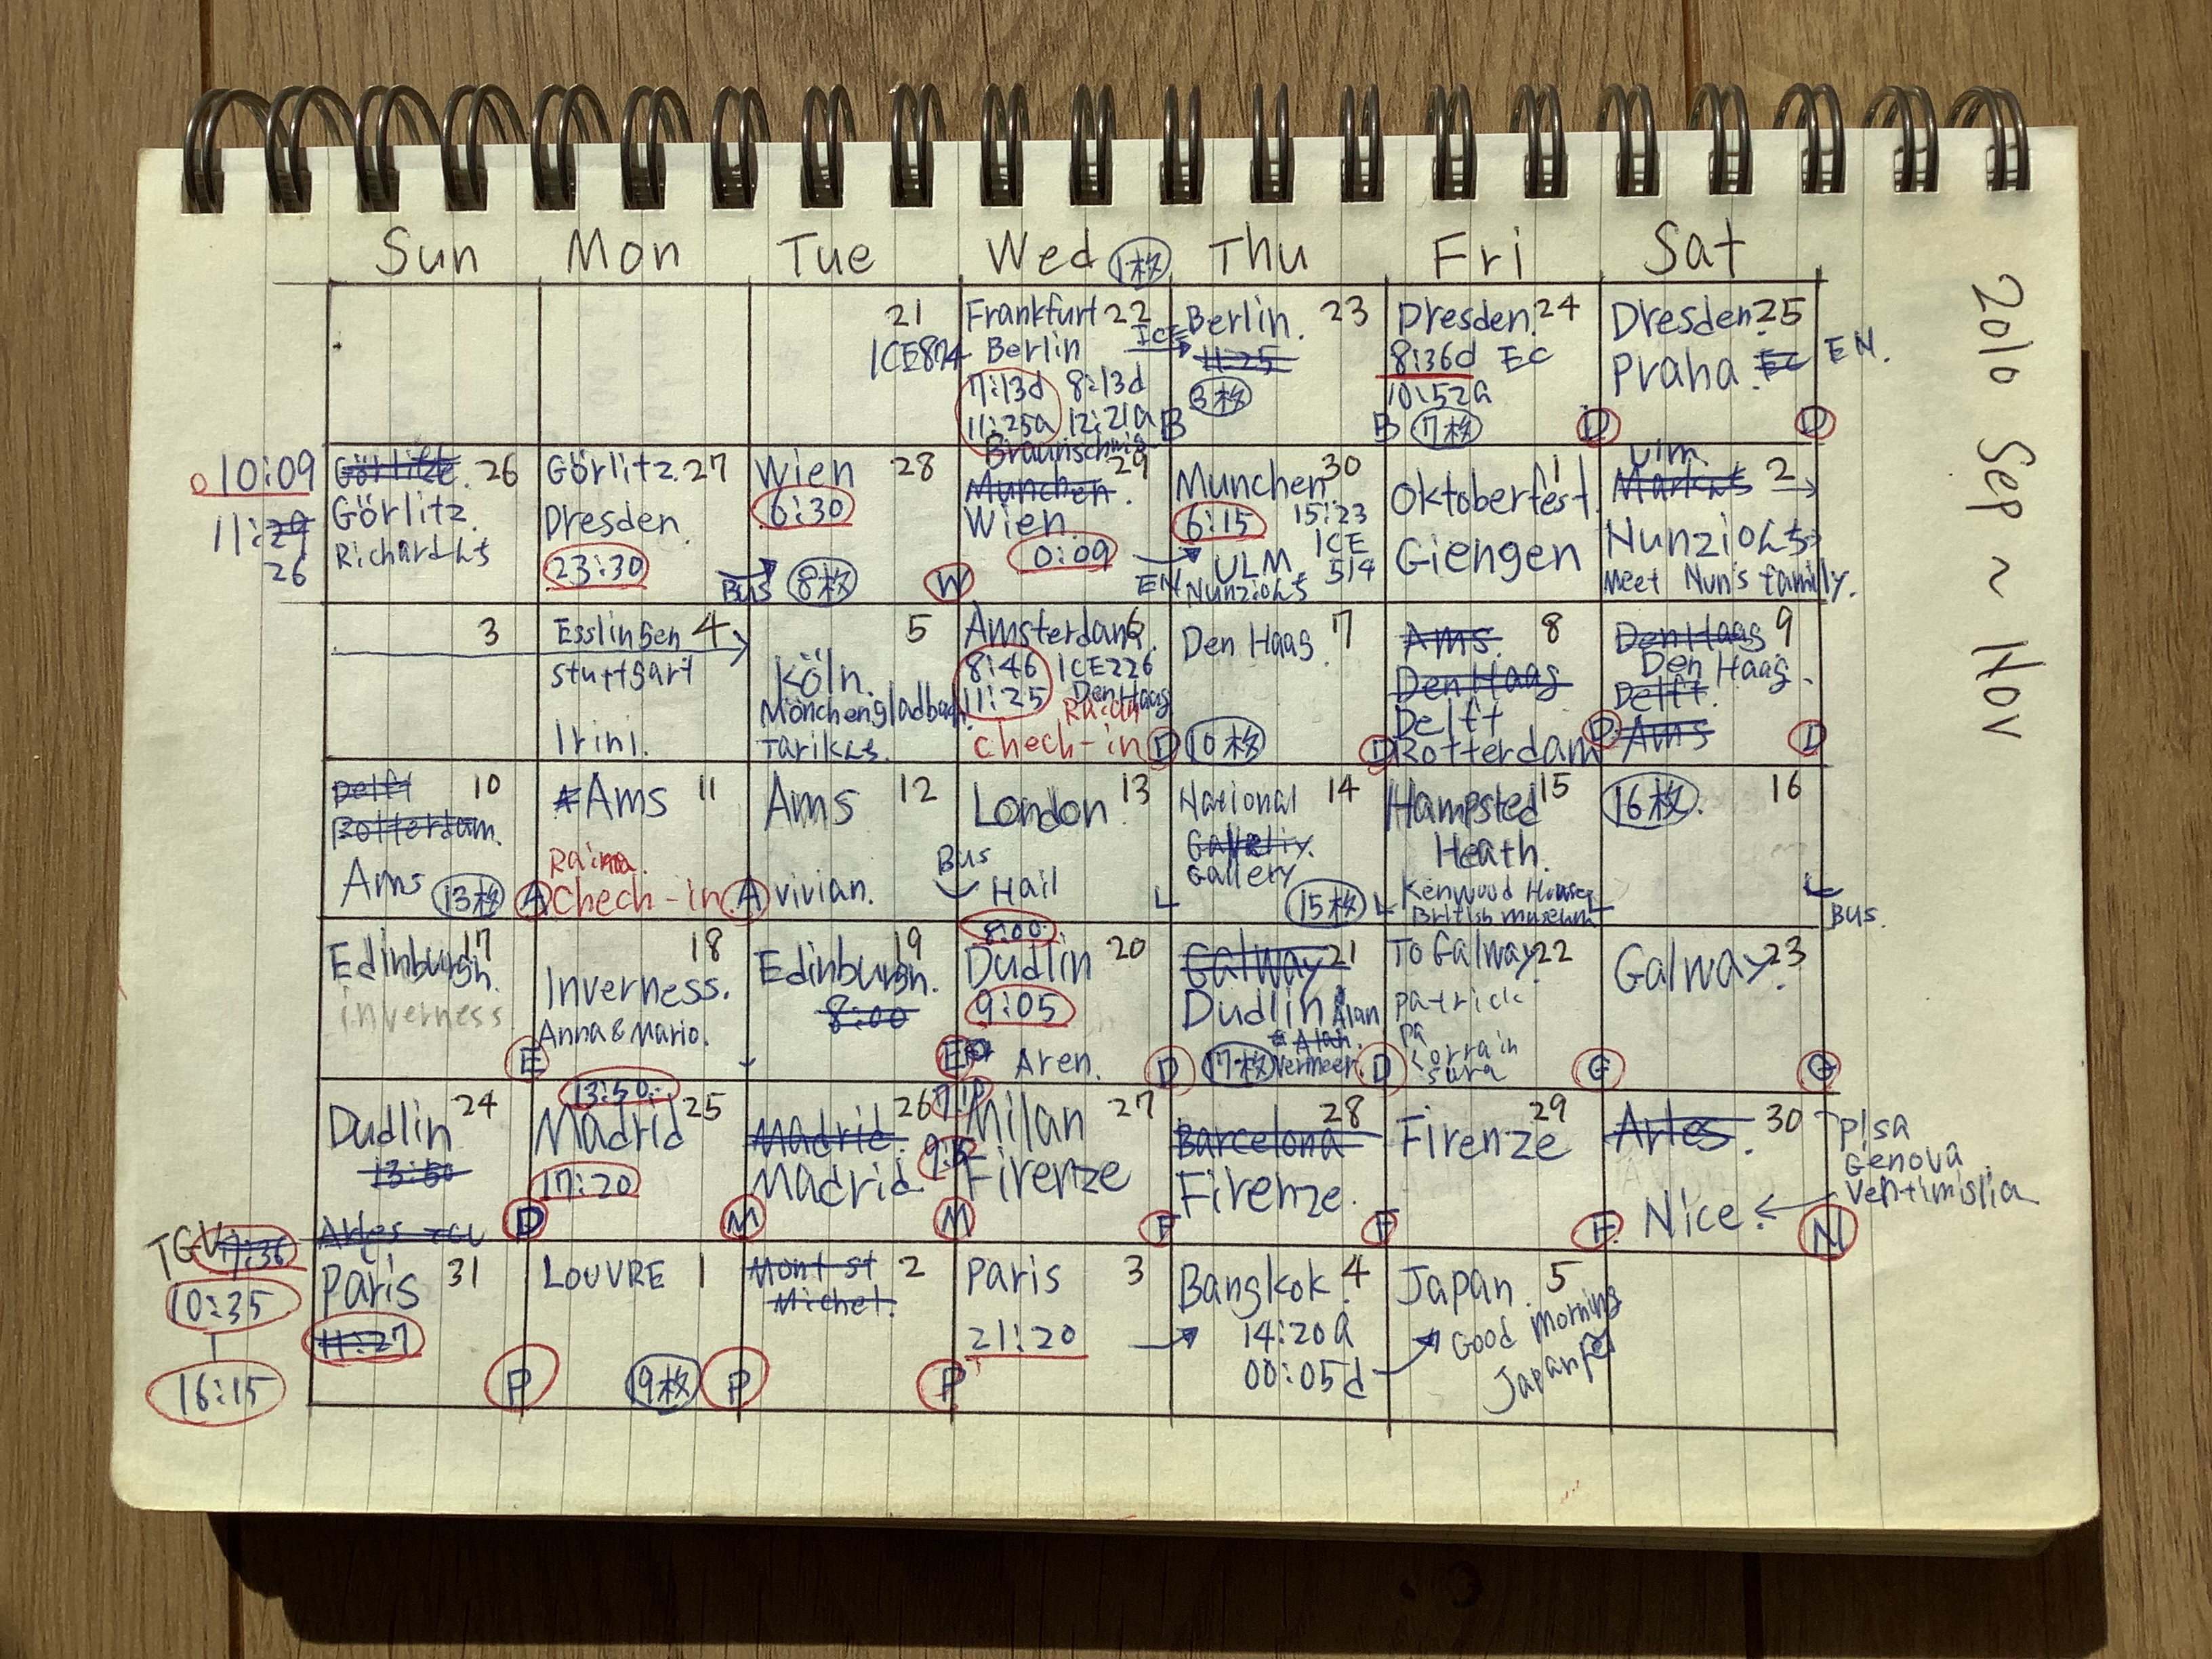 Sun Mon Tue Wed 1枚 Thu Fri Sat
2010 Sep ~ Nov
21
ICE874
Frankfurt 22
Berlin ICE
7:13d 8:13d
11:25a 12:21a B
Berlin. 23
11:25
3枚
B
Dresden. 24
8:36d EC
10:52a
7枚 D
Dresden 25
Praha. EC EN.
D
10:09
11:29
26
Görlitz. 26
Görlitz.
Richardんち
Görlitz. 27
Dresden.
23:30
Bus
Wien 28
6:30
8枚 W
Braunschweig
29
Munchen.
Wien.
0:09
EN
Munchen 30
6:15 15:23
ICE
ULM 514
Nunzioんち
1
Oktoberfest.
Giengen
Ulm.
2
Nunzioんち
Meet Nun's family.
3
Esslingen 4
Stuttgart
Irini.
5
Köln.
Mönchengladbach.
Tarikんち.
Amsterdam 6
8:46 ICE226
11:25 Den Haag
Raina
Chech-in D
Den Haag. 7
10枚 D
Ams. 8
Den Haag
Delft
Rotterdam D
Den Haag 9
Den Haag.
Delft.
Ams D
Delft 10
Rotterdam.
Ams 13枚 A
Ams 11
Raina.
Chech-in. A
Ams 12
vivian.
Bus
London. 13
Hail
L
National 14
Gallery
15枚 L
Hampsted 15
Heath.
Kenwood House
British museum L
16枚. 16
Bus.
Edinburgh. 17
inverness
E
18
Inverness.
Anna & Mario.
Edinburgh. 19
8:00
E
8:00
Dudlin 20
9:05
Aren. D
Galway 21
Dudlin Alan
Alan.
17枚 Vermeer. D
To Galway. 22
Patrick
Pa
Lorrain
Sura
G
Galway. 23
G
Dudlin 24
13:50
D
13:50
Madrid 25
17:20
M
26
Madrid.
Madrid
M
Milan 27
Firenze
F
28
Barcelona
Firenze.
F
29
Firenze
F
Arles. 30
Nice.
N
Pisa
Genova
Ventimislia
TGV 7:36
10:35
16:15
Paris 31
11:27
P
LOUVRE 1
19枚 P
Mont st 2
Michel.
P
Paris 3
21:20
Bangkok. 4
14:20a
00:05d
Japan. 5
Good Morning
Japan